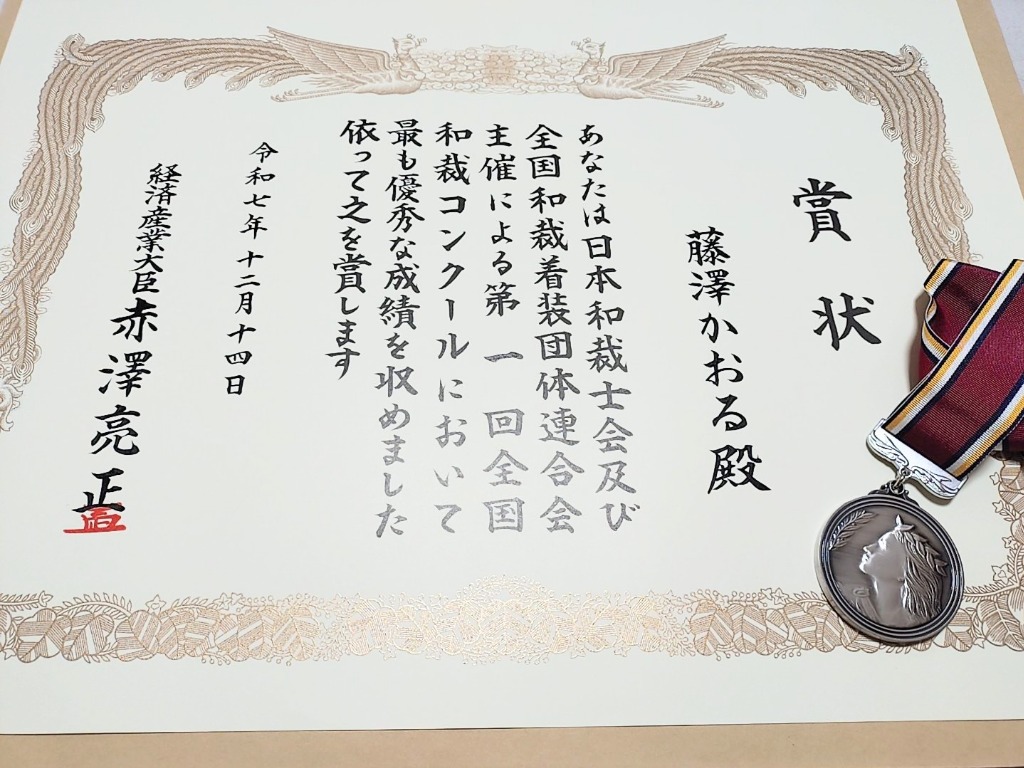 賞状
藤澤かおる殿
あなたは日本和裁士会及び
全国和裁着装団体連合会
主催による第一回全国
和裁コンクールにおいて
最も優秀な成績を収めました
依って之を賞します
令和七年十二月十四日
経済産業大臣 赤澤亮正